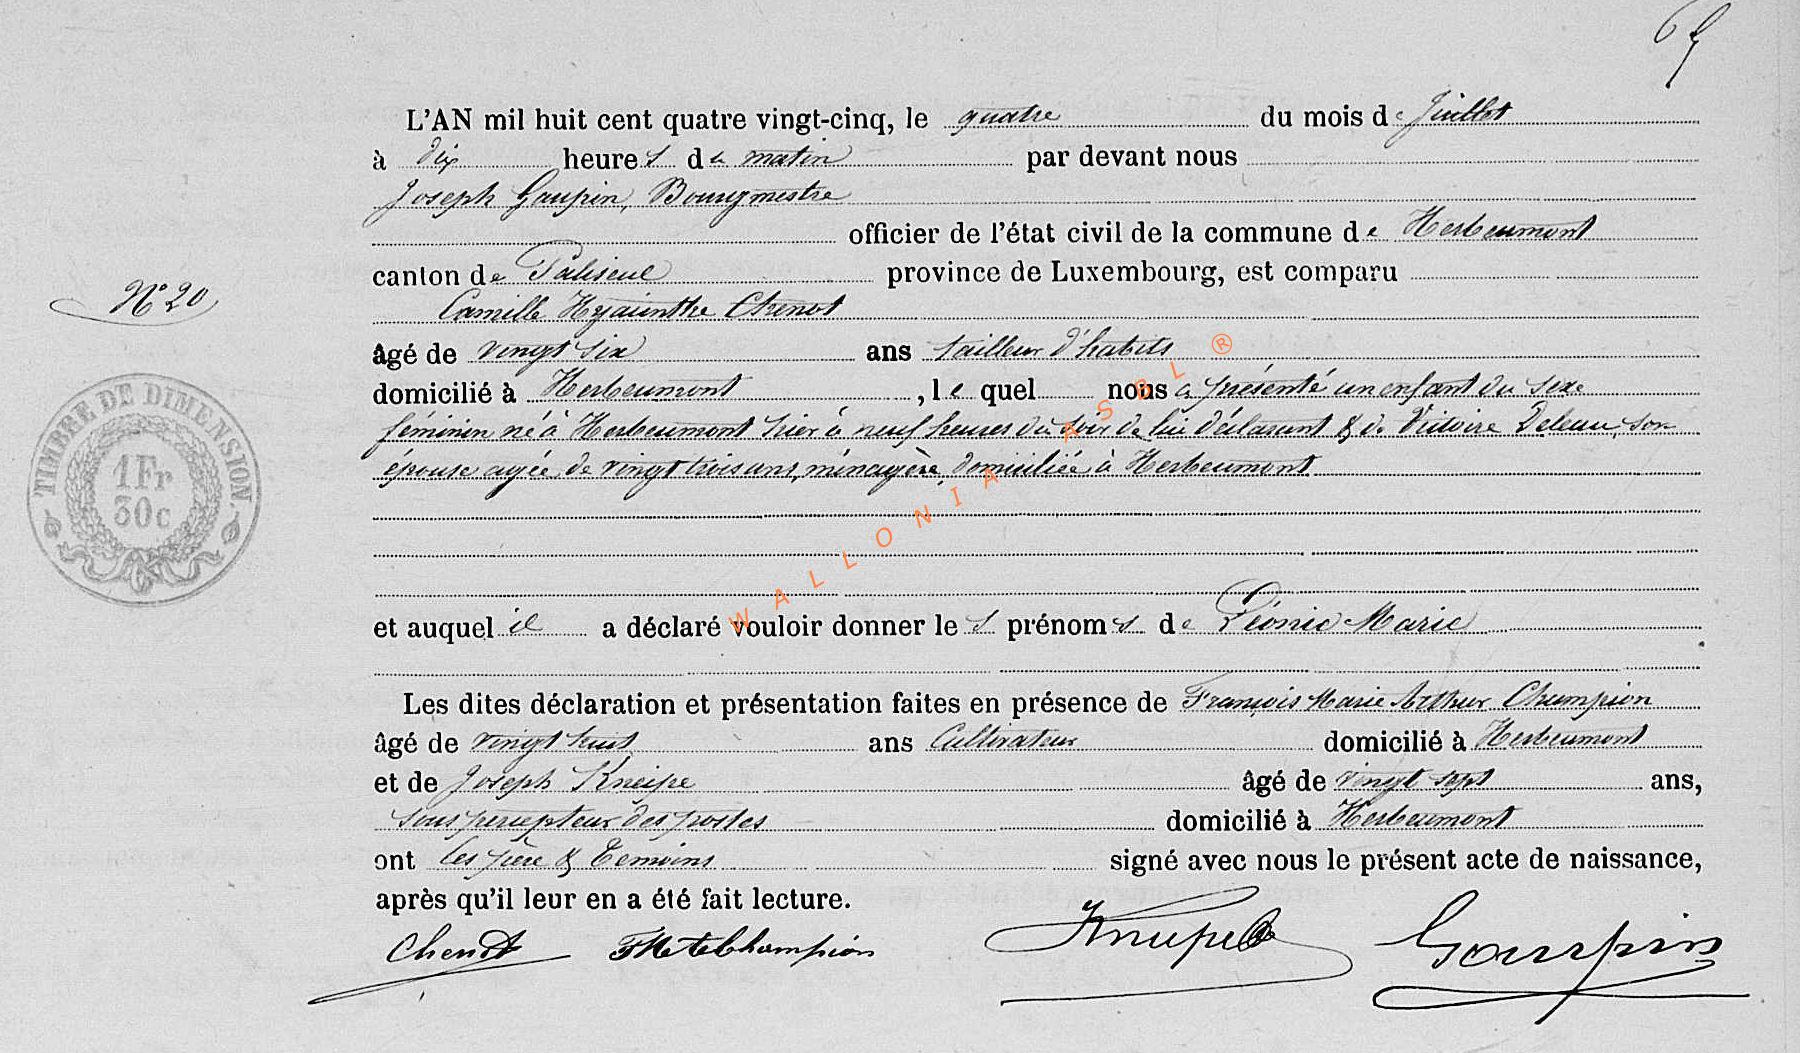 L'AN mil huit cent quatre vingt-cinq, le quatre du mois de Juillet
à dix heures du matin par devant nous
Joseph Gourpin, Bourgmestre
officier de l'état civil de la commune de Herbeumont
canton de Paliseul province de Luxembourg, est comparu
N° 20
Camille Hyacinthe Chenot
âgé de vingt six ans tailleur d'habits
domicilié à Herbeumont, le quel nous a présenté un enfant du sexe
féminin né à Herbeumont hier à neuf heures du soir de lui déclarant & de Victoire Deleau, son
épouse agée de vingt trois ans, ménagère, domiciliée à Herbeumont
TIMBRE DE DIMENSION
1 Fr
30c
WALLONIA ASBL ®
et auquel il a déclaré vouloir donner les prénoms de Léonie Marie
Les dites déclaration et présentation faites en présence de François Marie Arthur Champion
âgé de vingt huit ans Cultivateur domicilié à Herbeumont
et de Joseph Kneipe âgé de vingt sept ans,
sous percepteur des postes domicilié à Herbeumont
ont les père & Témoins signé avec nous le présent acte de naissance,
après qu'il leur en a été fait lecture.
Chenot Champion Kneipe Gourpin